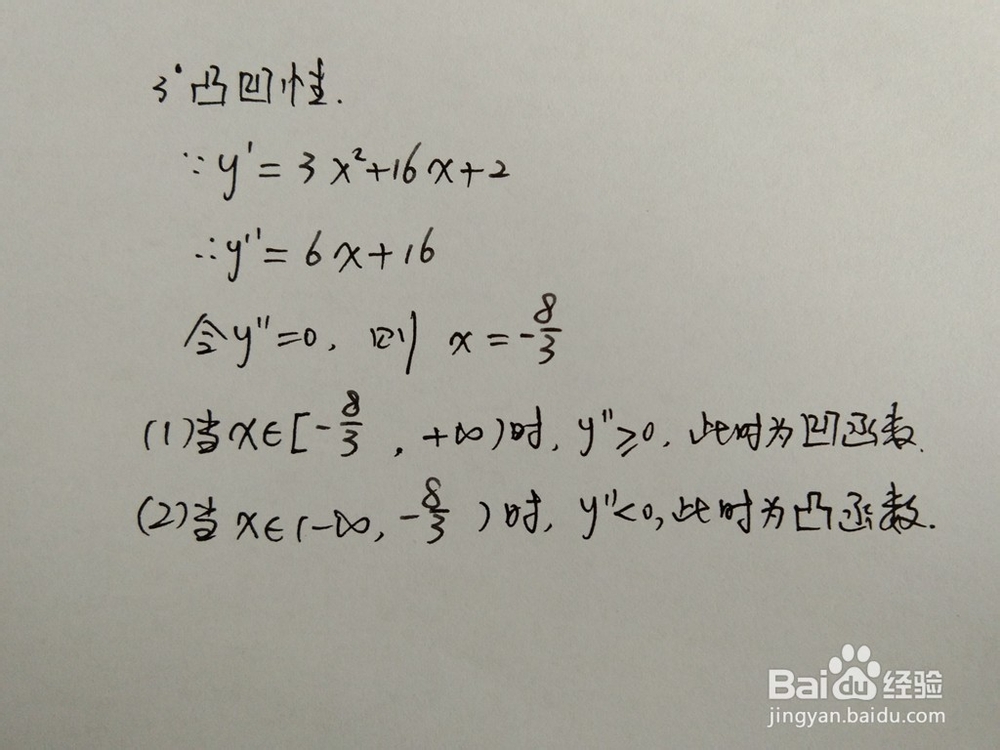 3°凸凹性.
∵y'=3x²+16x+2
∴y''=6x+16
令y''=0, 则 x=-8/3
(1)当x∈[-8/3, +∞)时, y''≥0, 此时为凹函数.
(2)当x∈(-∞, -8/3)时, y''<0, 此时为凸函数.
Baidu经验
jingyan.baidu.com